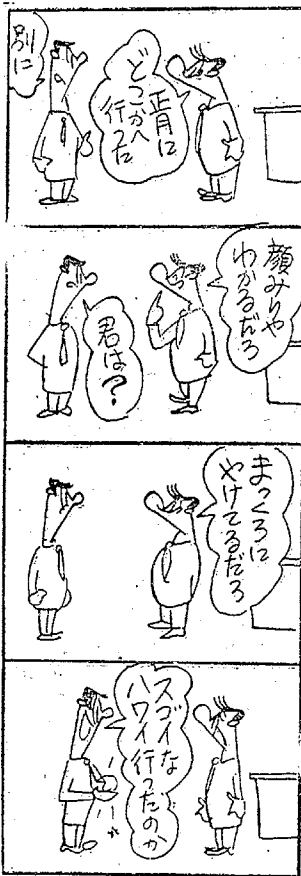 正月に
どこかへ
行った
別に
顔みりゃ
わかるだろ
君は?
まっくろに
やけてるだろ
スゴイな
ハワイ行ったのか